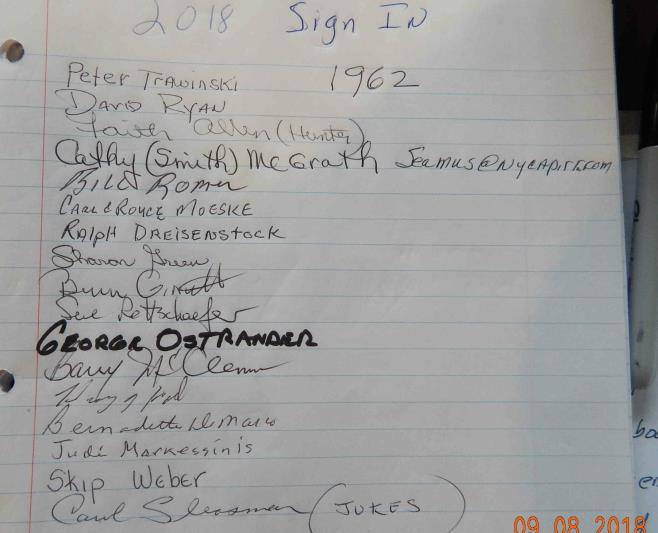 2018 Sign In
Peter Trawinski 1962
David Ryan
Faith Allen (Hunter)
Cathy (Smith) McGrath
Bill Romer
Carl & Royce Moeske
Ralph Dreisenstock
Sharon Green
Sue Rettschaefer
George Ostrander
Barry McClenn
Bernadette DiMarco
Judi Markessinis
Skip Weber
Carol Slessman (Jukes)
09.08.2018